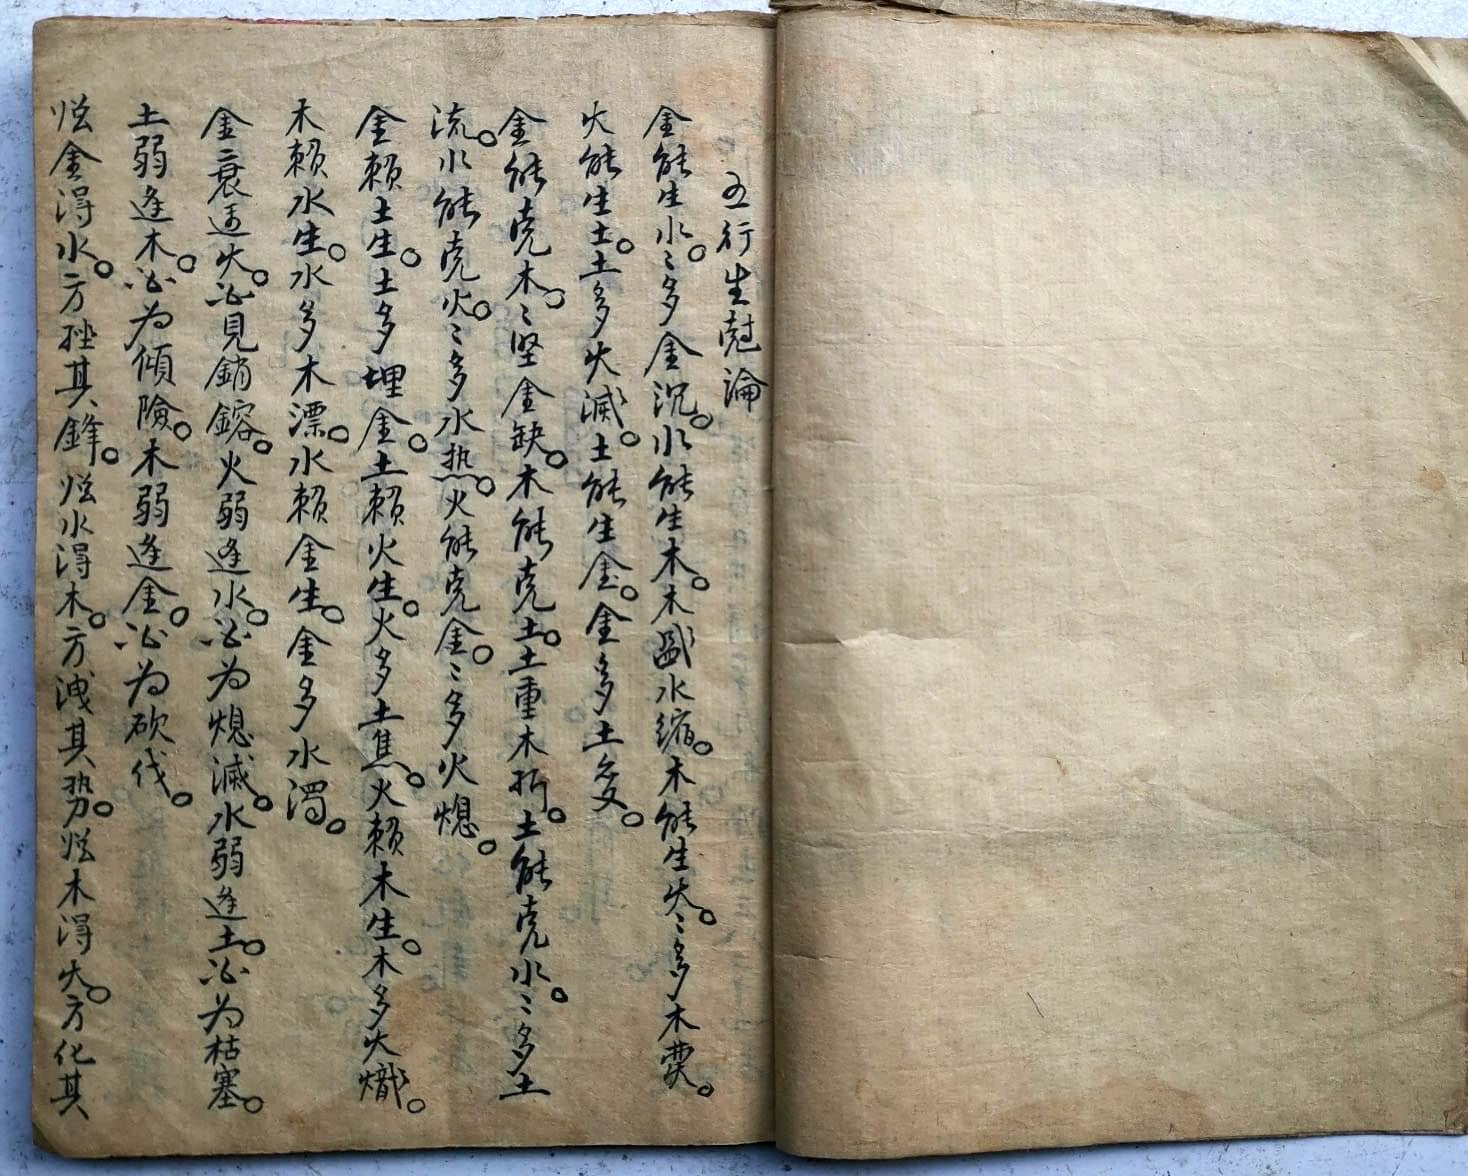 五行生尅論
金能生水。〻多金沉。水能生木。木盛水缩。木能生火。〻多木焚。
火能生土。土多火滅。土能生金。金多土变。
金能克木。〻坚金缺。木能克土。土重木折。土能克水。〻多土
流。水能克火。〻多水热。火能克金。〻多火熄。
金賴土生。土多埋金。土賴火生。火多土焦。火賴木生。木多火熾。
木賴水生。水多木漂。水賴金生。金多水濁。
金衰遇火。必見銷鎔。火弱逢水。必为熄滅。水弱逢土。必为枯塞。
土弱逢木。必为傾險。木弱逢金。必为砍伐。
金得水。方挫其鋒。水得木。方洩其势。木得火。方化其